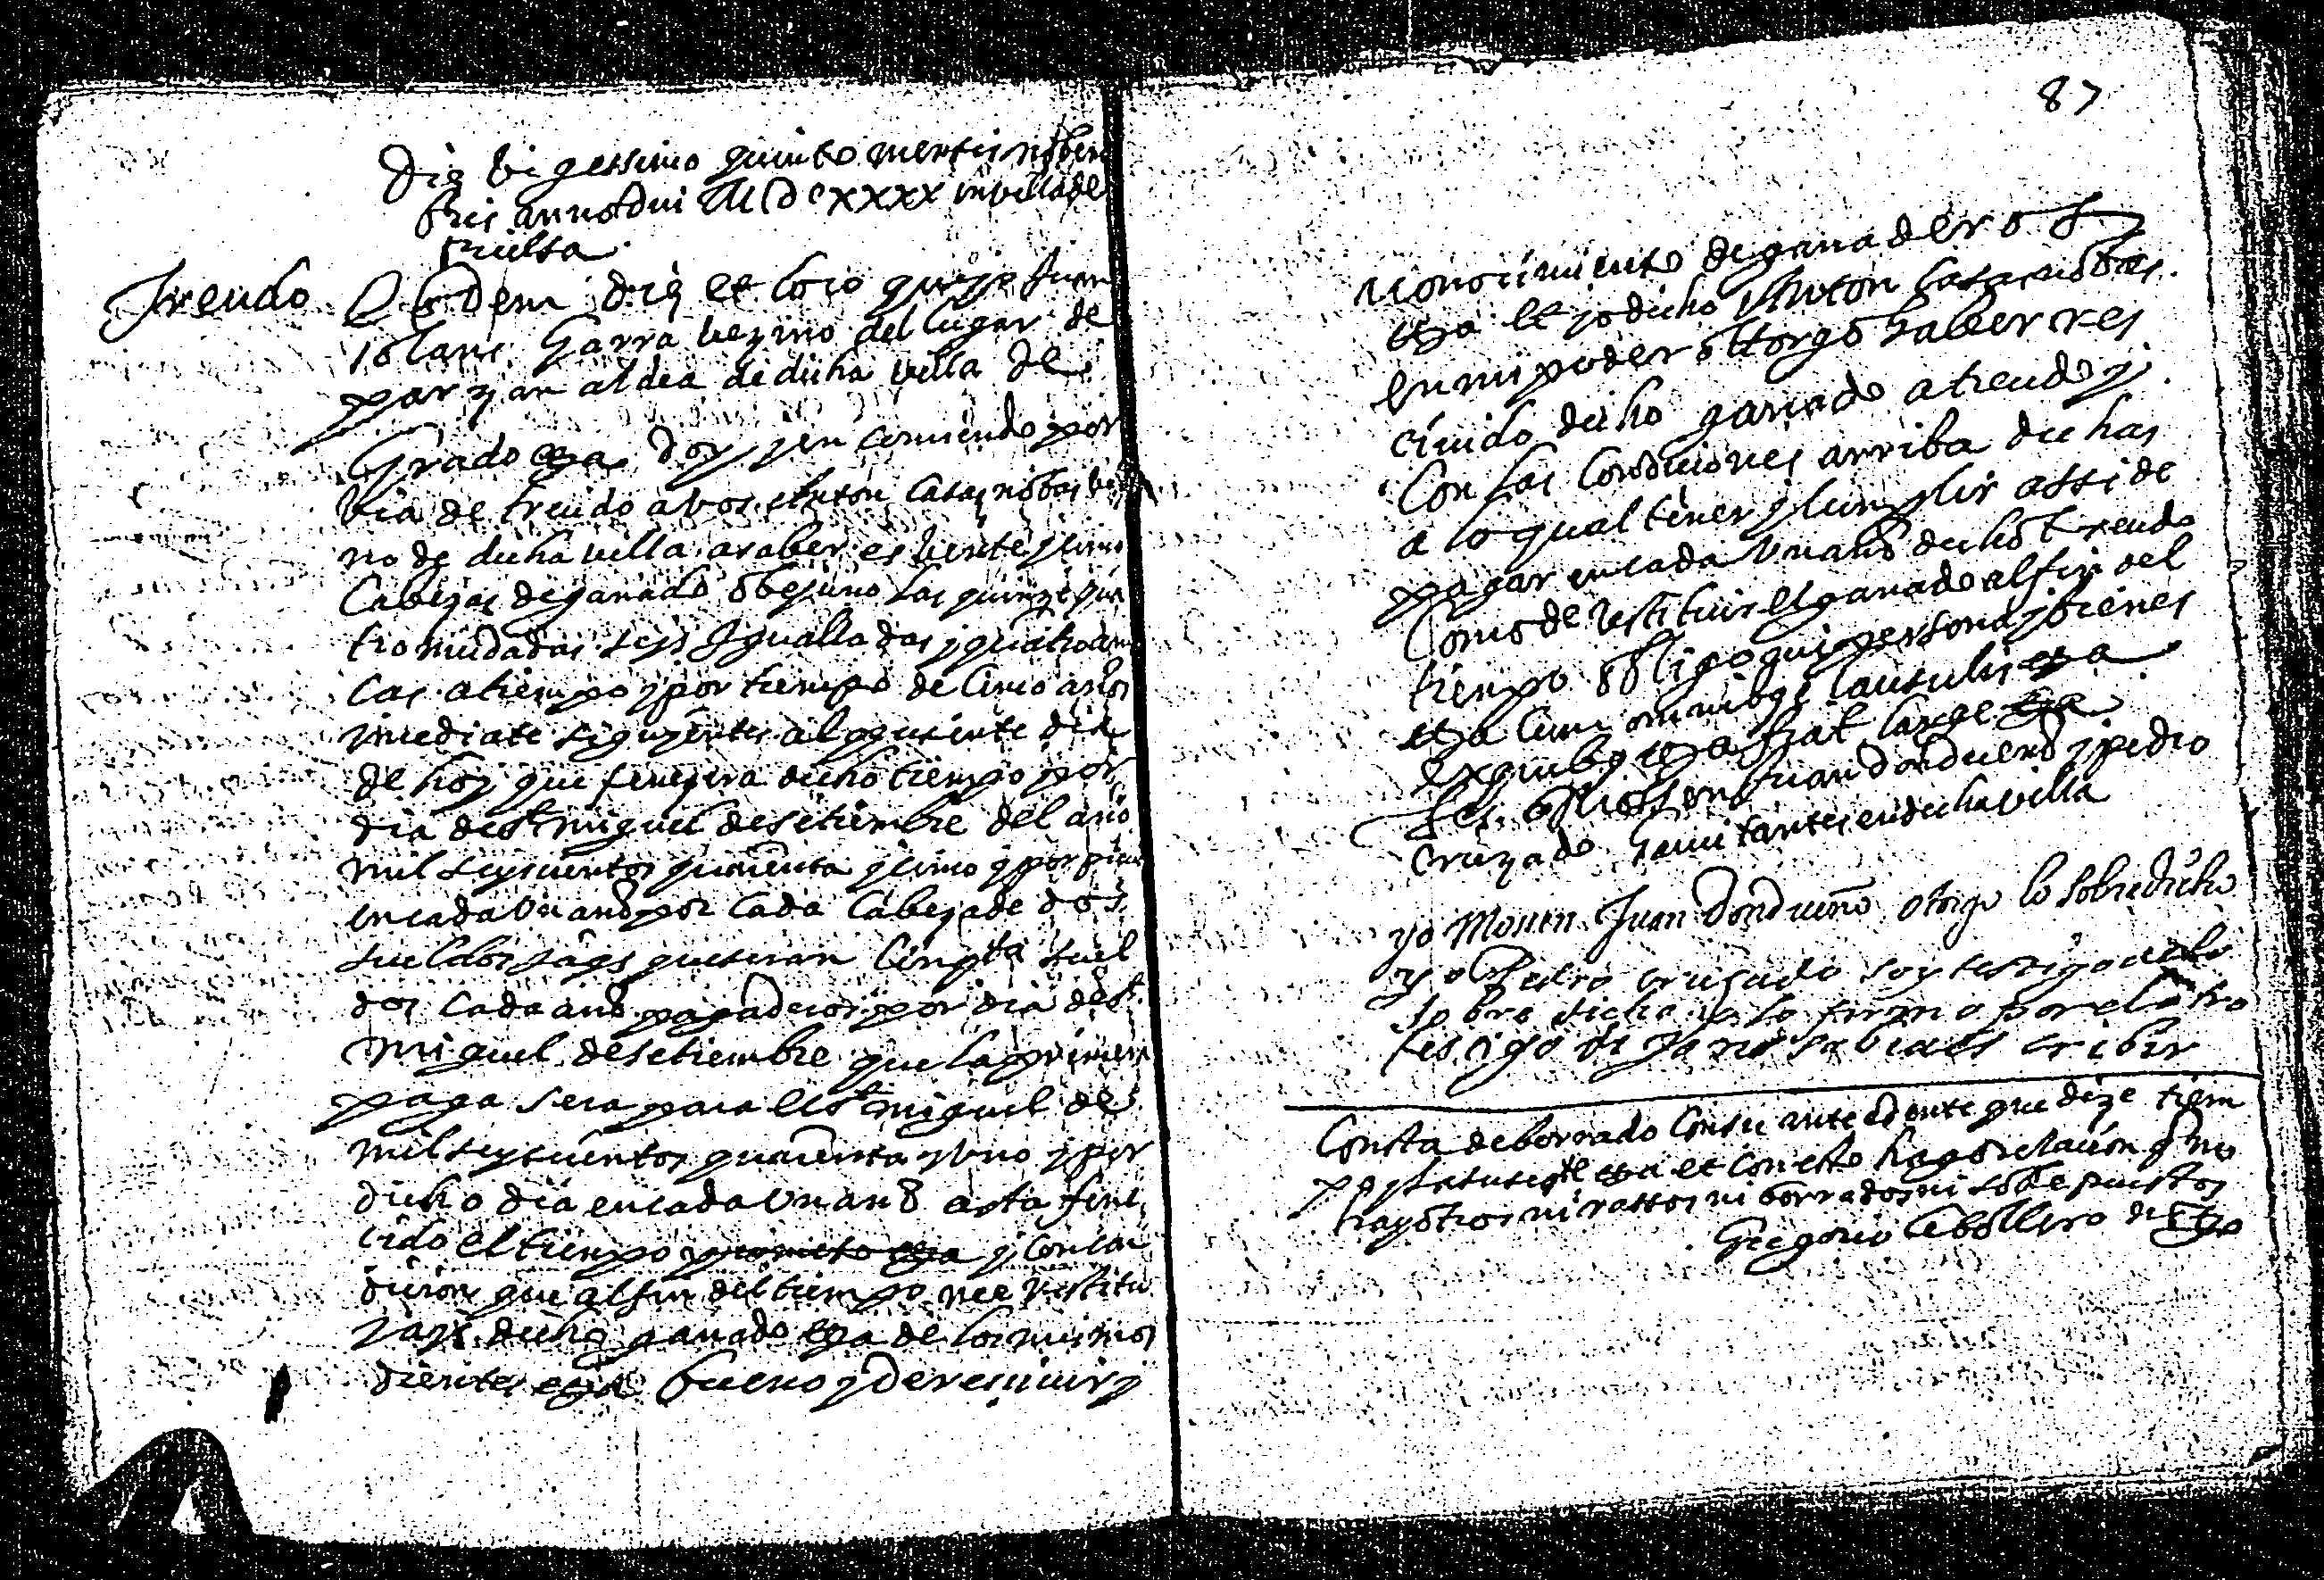 Die bigessimo quinto mensis nobem
bris anno dni MDCXXXX in villa de
Treudo Eodem die et loco que yo Juan
Garra bezino del lugar de
parzan aldea de dicha villa de
Grado etza doy y en comiendo por
bia de treudo a vos Anton Casasnobas bezi
no de dicha villa a saber es beinte y cinco
Cabezas de ganado obejuno las quinze qua
tromudadas seys Igualladas y quatro
a tiempo y por tiempo de Cinco años
inmediate siguientes al presente dia
de hoy que fenezera dicho tiempo por
dia de st miguel de setiembre del año
mil seyscientos quarenta y cinco y por
en cada un año por Cada Cabeza de dos
sueldos jaqs que seran Cinqta suel
dos Cada año pagaderos por dia de st
Miguel de setiembre que la primera
paga sera para el st miguel de
mil seyscientos quarenta y uno y por
dicho dia en cada un año asta fene
cido el tiempo y con con
dicion que al fin del tiempo me restitu
yays dicho ganado etza de los mismos
dientes etza bueno y de recivir y
87
conocimiento de ganaderos
etza et yo dicho Anton Casasnobas
en mi poder ottorgo haber res
civido dicho ganado a treudo y
Con las Condiciones arriba dichas
a lo qual tener y cumplir assi de
pagar en cada un año dicho treudo
Como de restituir el ganado al fin del
tiempo obligo mi persona y bienes
etza cum omnibus clausulis etza
ex quibus etza fiat large etza
Tes Mossen Juan Dondueño y pedro
cruzado havitantes en dicha villa
yo Mosen Juan Dondueño otorgo lo sobredicho
yo Pedro cruzado soy testigo de lo
sobre dicho y lo firmo por el otro
testigo di ja no sabia es cribir
Consta de borrado Con su antecedente que dize tiem
et con esto hago relacion q no
hay otros ni rassos ni borrados ni sobrepuestos
Gregorio Cebollero de